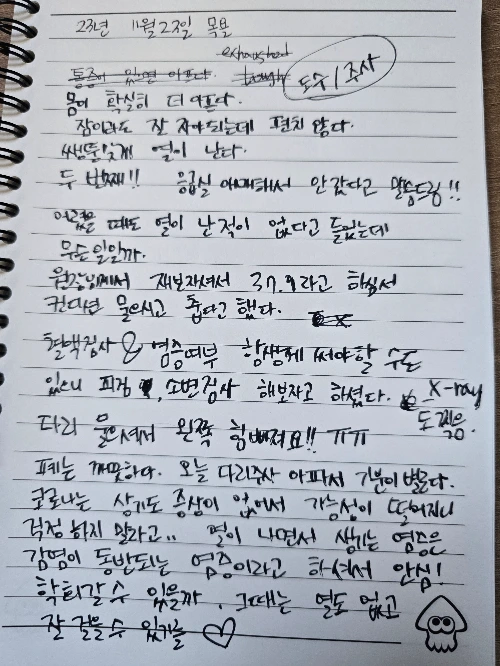 23년 11월 23일 목요
exhausted
통증이 있으면 아프다. tough 도수/주사
몸이 확실히 더 아프다.
잠이라도 잘 자야되는데 편치 않다.
쌩뚱맞게 열이 난다.
두 번째!! 응급실 애매해서 안갔다고 말씀드림!!
어렸을 때도 열이 난적이 없다고 들었는데
무슨일일까.
원장님께서 재보자셔서 37.9라고 하심서
컨디션 물으시고 춥다고 했다.
혈액검사 & 염증여부 항생제 써야할 수도
있으니 피검, 소변검사 해보자고 하셨다. X-ray
도 찍음.
다리 물으셔서 왼쪽 힘빠져요!! ㅠㅠ
피는 깨끗하다. 오늘 다리주사 아파서 기분이 별로다.
코로나는 상기도 증상이 없어서 가능성이 떨어지니
걱정 하지 말라고.. 열이 나면서 생기는 염증은
감염이 동반되는 염증이라고 하셔서 안심!
학회갈 수 있을까. 그때는 열도 없고
잘 걸을 수 있기를 ♡